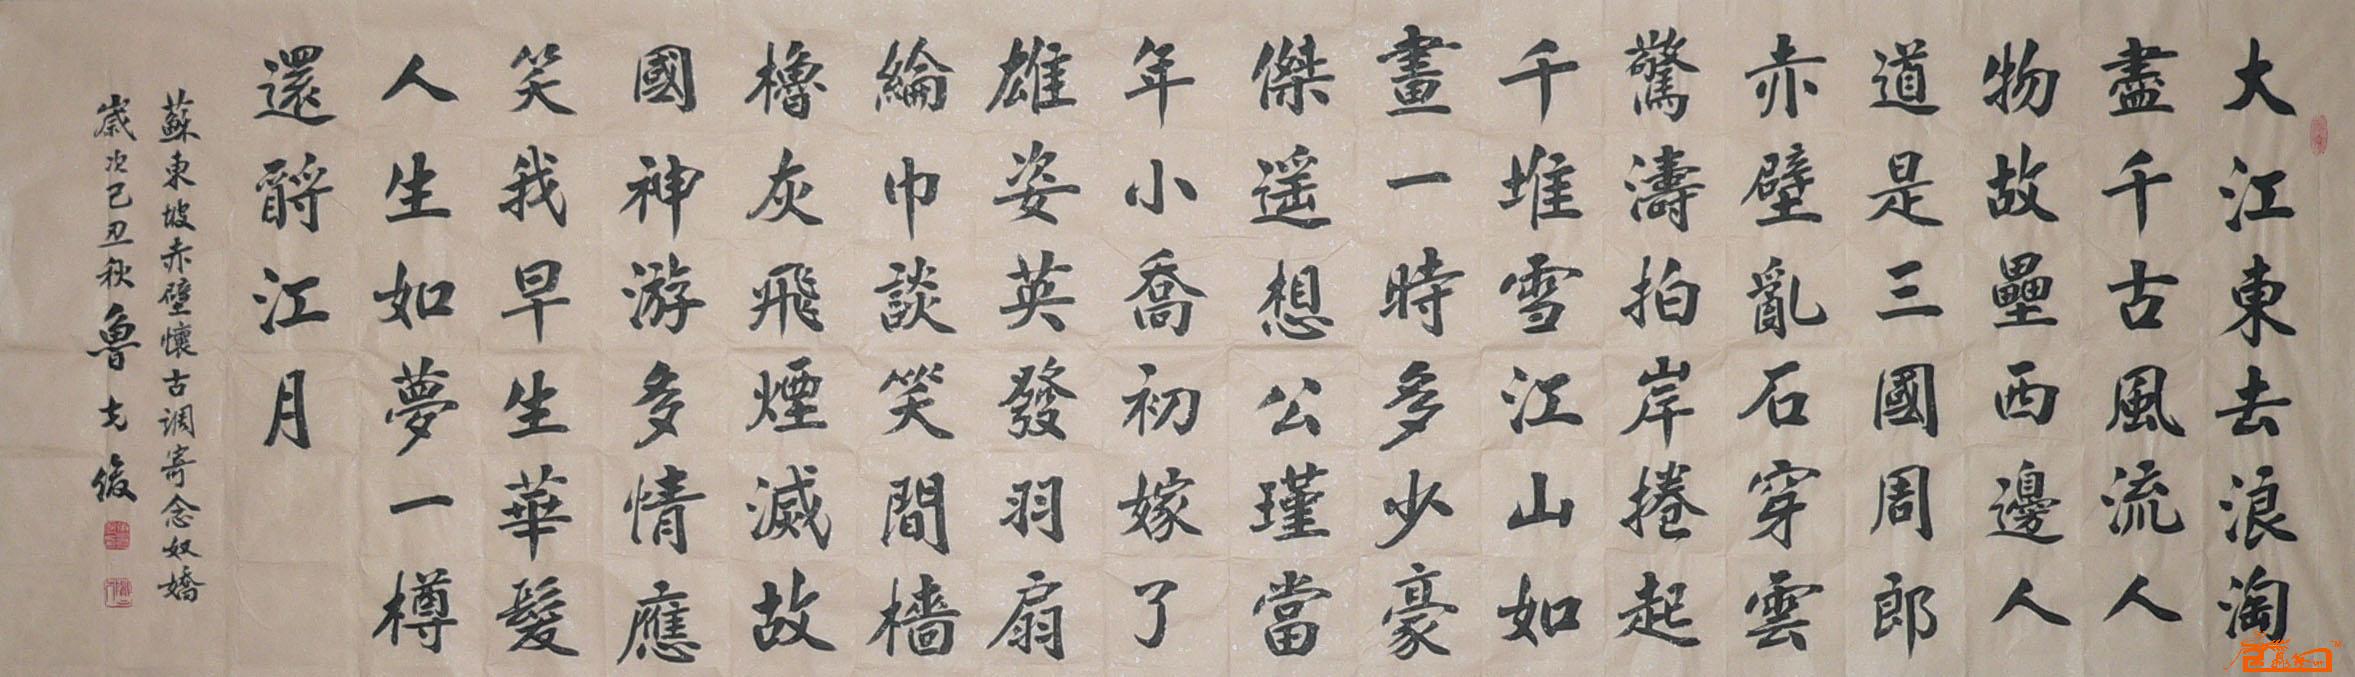 大江東去浪淘
盡千古風流人
物故壘西邊人
道是三國周郎
赤壁亂石穿雲
驚濤拍岸捲起
千堆雪江山如
畫一時多少豪
傑遥想公瑾當
年小喬初嫁了
雄姿英發羽扇
綸巾談笑間檣
櫓灰飛煙滅故
國神游多情應
笑我早生華髮
人生如夢一樽
還酹江月
蘇東坡赤壁懷古調寄念奴嬌
歲次己丑秋魯克俊